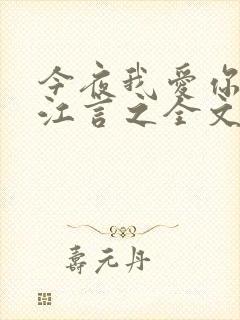 今夜我爱你
江言之全文
寿元丹